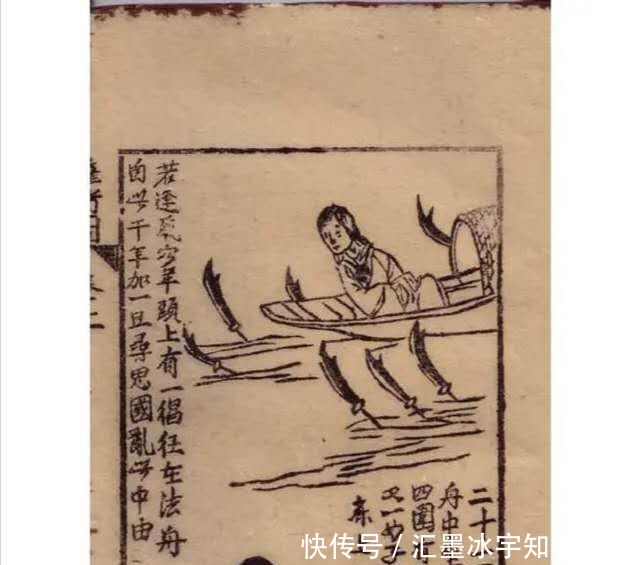 二十
舟中
四圍
又一女子
床上
若逢年頭上有一在法舟
自此千年加一旦尋思國亂此中由
快传号/汇墨冰宇知